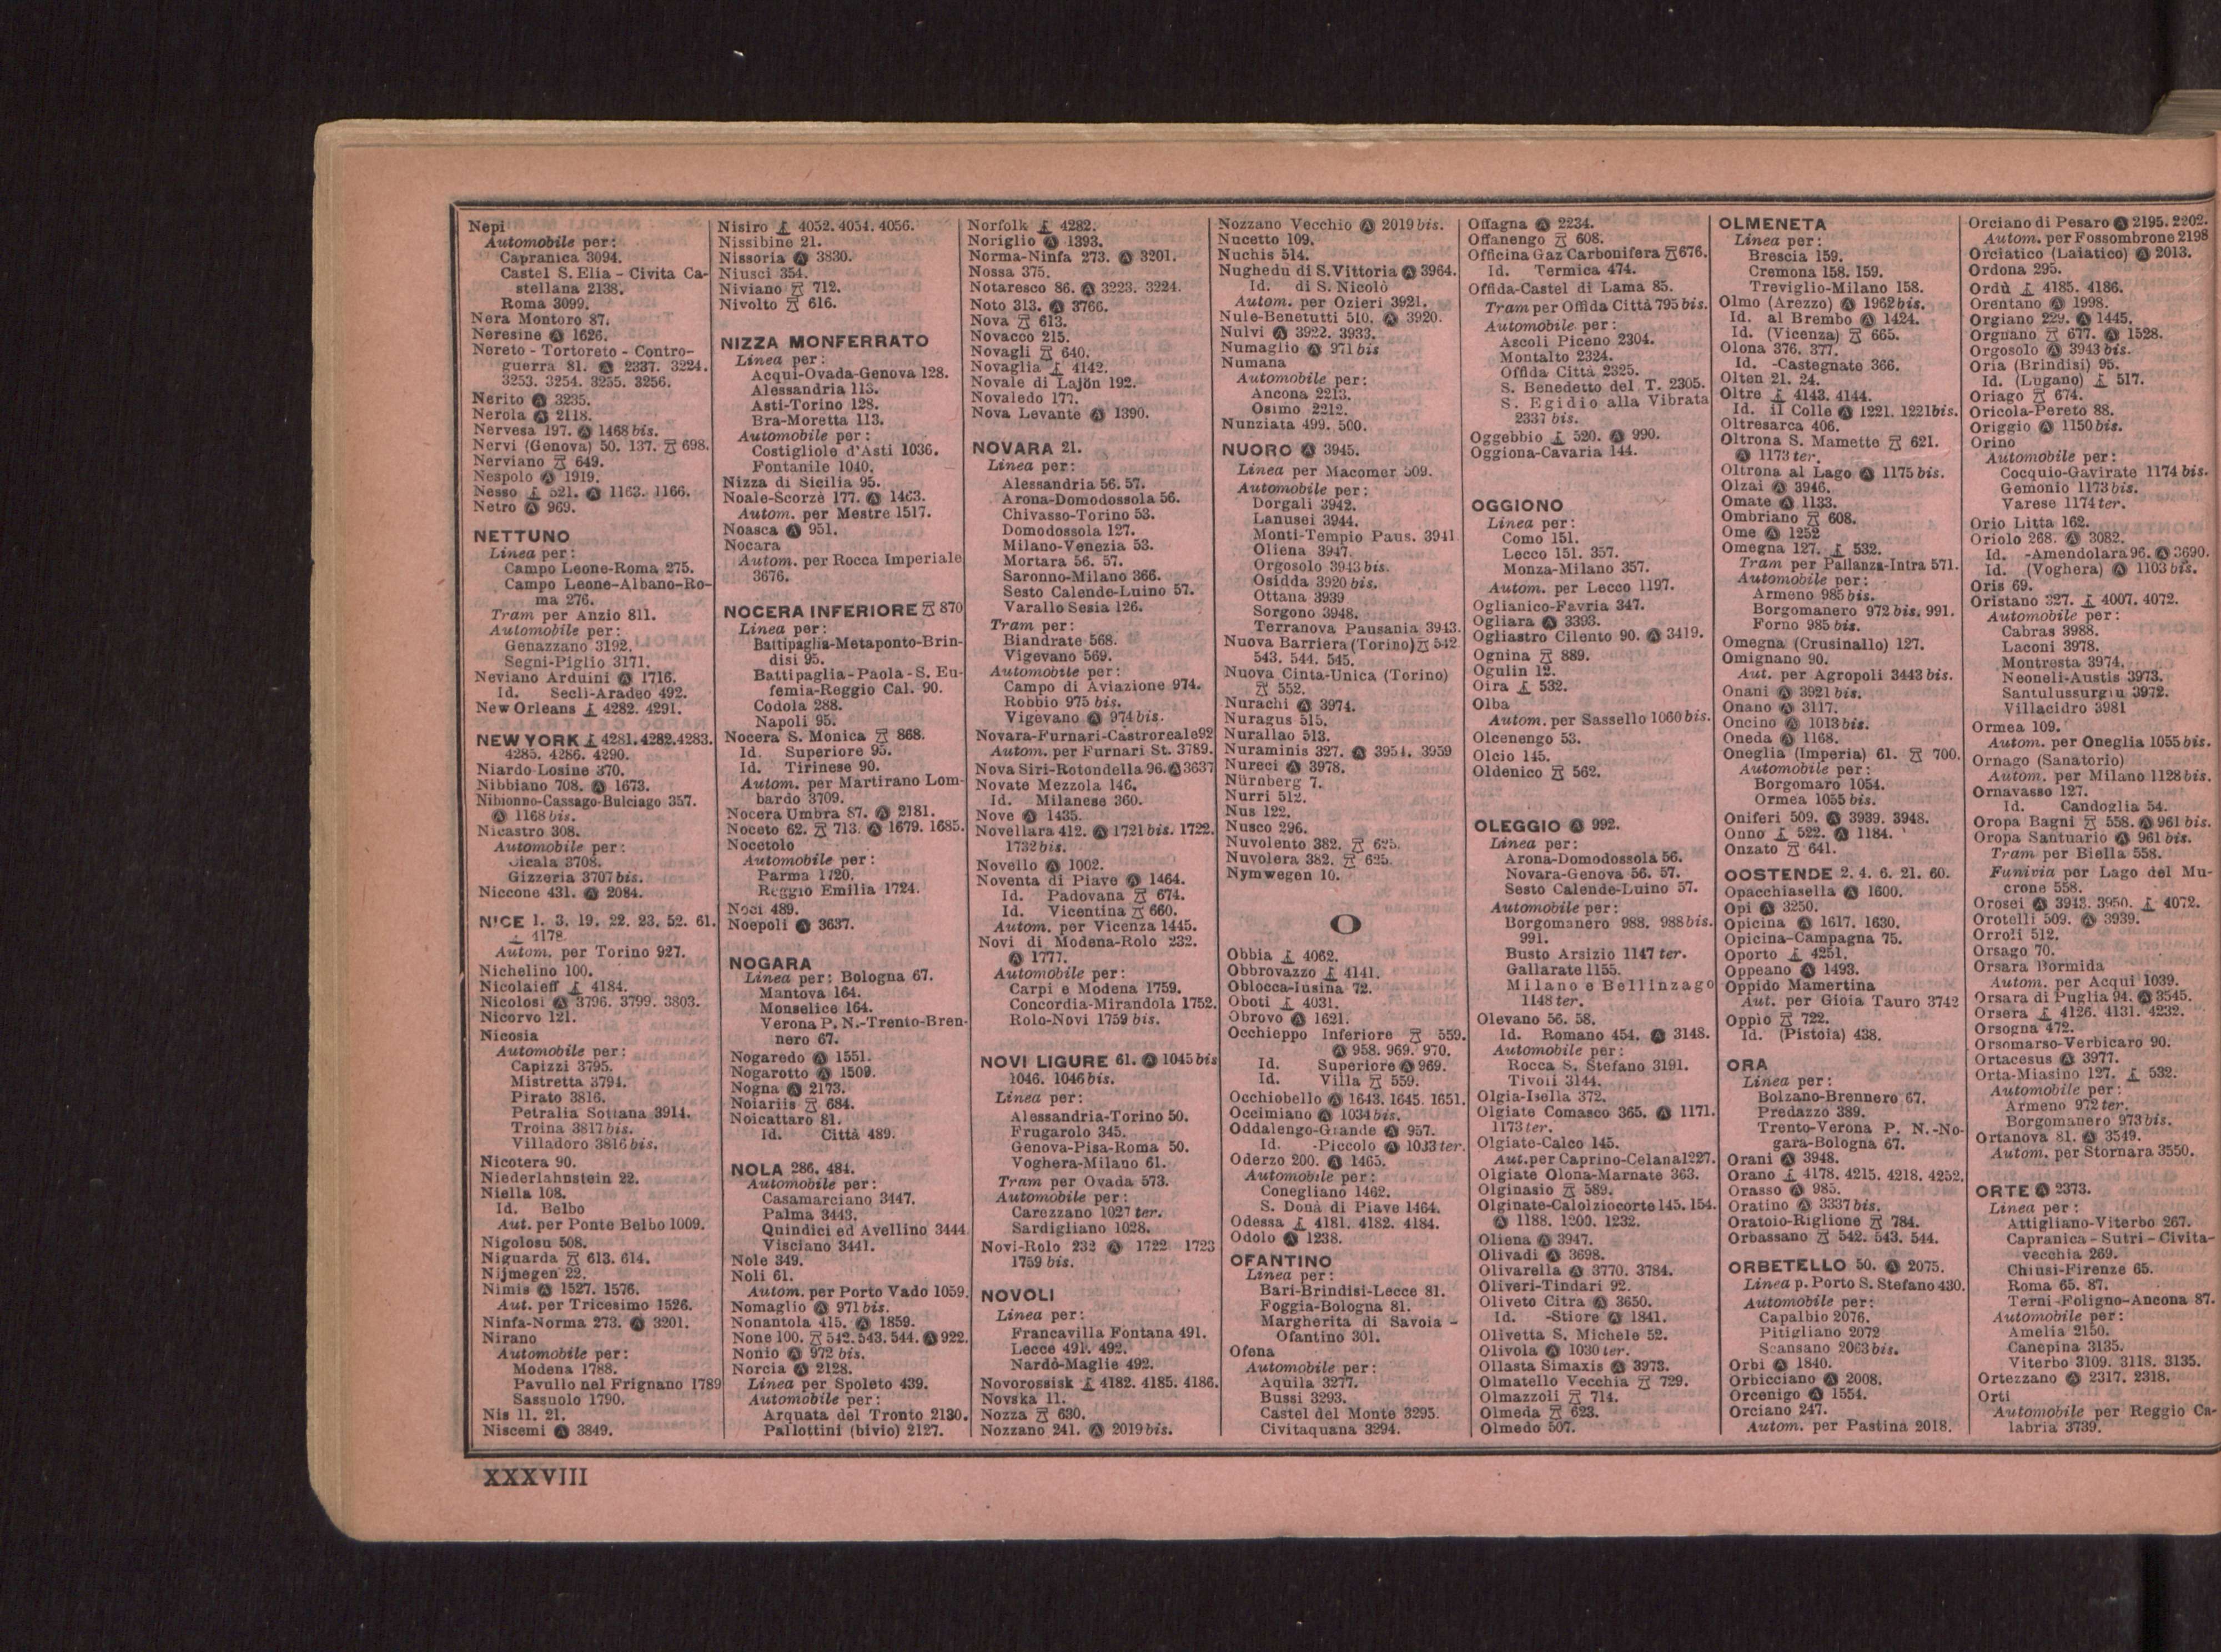 Nepi
Automobile per:
Capranica 3094.
Castel S. Elia - Civita Ca-
stellana 2138.
Roma 3099.
Nera Montoro 87.
Neresine Ⓐ 1626.
Nereto - Tortoreto - Contro-
guerra 81. Ⓐ 2337. 3224.
3253. 3254. 3255. 3256.
Nerito Ⓐ 3235.
Nerola Ⓐ 2118.
Nervesa 197. Ⓐ 1468 bis.
Nervi (Genova) 50. 137. 698.
Nerviano 649.
Nespolo Ⓐ 1919.
Nesso 521. Ⓐ 1163. 1166.
Netro Ⓐ 969.
NETTUNO
Linea per:
Campo Leone-Roma 275.
Campo Leone-Albano-Ro-
ma 276.
Tram per Anzio 811.
Automobile per:
Genazzano 3192.
Segni-Piglio 3171.
Neviano Arduini Ⓐ 1716.
Id. Secli-Aradeo 492.
New Orleans 4282. 4291.
NEW YORK 4281. 4282. 4283.
4285. 4286. 4290.
Niardo Losine 370.
Nibbiano 708. Ⓐ 1673.
Nibionno-Cassago-Bulciago 357.
Ⓐ 1168 bis.
Nicastro 308.
Automobile per:
Cicala 3708.
Gizzeria 3707 bis.
Niccone 431. Ⓐ 2084.
NICE 1. 3. 19. 22. 23. 52. 61.
1178.
Autom. per Torino 927.
Nichelino 100.
Nicolaieff 4184.
Nicolosi Ⓐ 3796. 3799. 3803.
Nicorvo 121.
Nicosia
Automobile per:
Capizzi 3795.
Mistretta 3794.
Pirato 3816.
Petralia Sottana 3914.
Troina 3817 bis.
Villadoro 3816 bis.
Nicotera 90.
Niederlahnstein 22.
Niella 108.
Id. Belbo
Aut. per Ponte Belbo 1009.
Nigolosu 508.
Niguarda 613. 614.
Nijmegen 22.
Nimis Ⓐ 1527. 1576.
Aut. per Tricesimo 1526.
Ninfa-Norma 273. Ⓐ 3201.
Nirano
Automobile per:
Modena 1788.
Pavullo nel Frignano 1789
Sassuolo 1790.
Nis 11. 21.
Niscemi Ⓐ 3849.
Nisiro 4052. 4054. 4056.
Nissibine 21.
Nissoria Ⓐ 3830.
Niusci 354.
Niviano 712.
Nivolto 616.
NIZZA MONFERRATO
Linea per:
Acqui-Ovada-Genova 128.
Alessandria 113.
Asti-Torino 128.
Bra-Moretta 113.
Automobile per:
Costigliole d'Asti 1036.
Fontanile 1040.
Nizza di Sicilia 95.
Noale-Scorzè 177. Ⓐ 1463.
Autom. per Mestre 1517.
Noasca Ⓐ 951.
Nocara
Autom. per Rocca Imperiale
3676.
NOCERA INFERIORE 870
Linea per:
Battipaglia-Metaponto-Brin-
disi 95.
Battipaglia - Paola - S. Eu-
femia-Reggio Cal. 90.
Codola 288.
Napoli 95.
Nocera S. Monica 868.
Id. Superiore 95.
Id. Tirinese 90.
Autom. per Martirano Lom-
bardo 3709.
Nocera Umbra 87. Ⓐ 2181.
Noceto 62. 713. Ⓐ 1679. 1685.
Nocetolo
Automobile per:
Parma 1720.
Reggio Emilia 1724.
Noci 489.
Noepoli Ⓐ 3637.
NOGARA
Linea per: Bologna 67.
Mantova 164.
Monselice 164.
Verona P. N.-Trento-Bren-
nero 67.
Nogaredo Ⓐ 1551.
Nogarotto Ⓐ 1509.
Nogna Ⓐ 2173.
Noiariis 684.
Noicattaro 81.
Id. Città 489.
NOLA 286. 484.
Automobile per:
Casamarciano 3447.
Palma 3443.
Quindici ed Avellino 3444.
Visciano 3441.
Nole 349.
Noli 61.
Autom. per Porto Vado 1059.
Nomaglio Ⓐ 971 bis.
Nonantola 415. Ⓐ 1859.
None 100. 542. 543. 544. Ⓐ 922.
Nonio Ⓐ 972 bis.
Norcia Ⓐ 2128.
Linea per Spoleto 439.
Automobile per:
Arquata del Tronto 2130.
Pallottini (bivio) 2127.
Norfolk 4282.
Noriglio Ⓐ 1393.
Norma-Ninfa 273. Ⓐ 3201.
Nossa 375.
Notaresco 86. Ⓐ 3223. 3224.
Noto 313. Ⓐ 3766.
Nova 613.
Novacco 215.
Novagli 640.
Novaglia 4142.
Novale di Lajōn 192.
Novaledo 177.
Nova Levante Ⓐ 1390.
NOVARA 21.
Linea per:
Alessandria 56. 57.
Arona-Domodossola 56.
Chivasso-Torino 53.
Domodossola 127.
Milano-Venezia 53.
Mortara 56. 57.
Saronno-Milano 366.
Sesto Calende-Luino 57.
Varallo Sesia 126.
Tram per:
Biandrate 568.
Vigevano 569.
Automobile per:
Campo di Aviazione 974.
Robbio 975 bis.
Vigevano Ⓐ 974 bis.
Novara-Furnari-Castroreale 92
Autom. per Furnari St. 3789.
Nova Siri-Rotondella 96. Ⓐ 3637
Novate Mezzola 146.
Id. Milanese 360.
Nove Ⓐ 1435.
Novellara 412. Ⓐ 1721 bis. 1722.
1732 bis.
Novello Ⓐ 1002.
Noventa di Piave Ⓐ 1464.
Id. Padovana 674.
Id. Vicentina 660.
Autom. per Vicenza 1445.
Novi di Modena-Rolo 232.
Ⓐ 1777.
Automobile per:
Carpi e Modena 1759.
Concordia-Mirandola 1752.
Rolo-Novi 1759 bis.
NOVI LIGURE 61. Ⓐ 1045 bis
1046. 1046 bis.
Linea per:
Alessandria-Torino 50.
Frugarolo 345.
Genova-Pisa-Roma 50.
Voghera-Milano 61.
Tram per Ovada 573.
Automobile per:
Carezzano 1027 ter.
Sardigliano 1028.
Novi-Rolo 232 Ⓐ 1722 1723
1759 bis.
NOVOLI
Linea per:
Francavilla Fontana 491.
Lecce 491. 492.
Nardò-Maglie 492.
Novorossisk 4182. 4185. 4186.
Novska 11.
Nozza 630.
Nozzano 241. Ⓐ 2019 bis.
Nozzano Vecchio Ⓐ 2019 bis.
Nucetto 109.
Nuchis 514.
Nughedu di S. Vittoria Ⓐ 3964.
Id. di S. Nicolò
Autom. per Ozieri 3921.
Nule-Benetutti 510. Ⓐ 3920.
Nulvi Ⓐ 3922. 3933.
Numaglio Ⓐ 971 bis
Numana
Automobile per:
Ancona 2213.
Osimo 2212.
Nunziata 499. 500.
NUORO Ⓐ 3945.
Linea per Macomer 509.
Automobile per:
Dorgali 3942.
Lanusei 3944.
Monti-Tempio Paus. 3941
Oliena 3947.
Orgosolo 3943 bis.
Osidda 3920 bis.
Ottana 3939
Sorgono 3948.
Terranova Pausania 3943.
Nuova Barriera (Torino) 542
543. 544. 545.
Nuova Cinta-Unica (Torino)
552.
Nurachi Ⓐ 3974.
Nuragus 515.
Nurallao 513.
Nuraminis 327. Ⓐ 3954. 3959
Nureci Ⓐ 3978.
Nürnberg 7.
Nurri 512.
Nus 122.
Nusco 296.
Nuvolento 382. 625.
Nuvolera 382. 625.
Nymwegen 10.
O
Obbia 4062.
Obbrovazzo 4141.
Oblocca-Iusina 72.
Oboti 4031.
Obrovo Ⓐ 1621.
Occhieppo Inferiore 559.
Ⓐ 958. 969. 970.
Id. Superiore Ⓐ 969.
Id. Villa 559.
Occhiobello Ⓐ 1643. 1645. 1651.
Occimiano Ⓐ 1034 bis.
Oddalengo-Grande Ⓐ 957.
Id. -Piccolo Ⓐ 1033 ter.
Oderzo 200. Ⓐ 1465.
Automobile per:
Conegliano 1462.
S. Donà di Piave 1464.
Odessa 4181. 4182. 4184.
Odolo Ⓐ 1238.
OFANTINO
Linea per:
Bari-Brindisi-Lecce 81.
Foggia-Bologna 81.
Margherita di Savoia -
Ofantino 301.
Ofena
Automobile per:
Aquila 3277.
Bussi 3293.
Castel del Monte 3295.
Civitaquana 3294.
Offagna Ⓐ 2234.
Offanengo 608.
Officina Gaz Carbonifera 676.
Id. Termica 474.
Offida-Castel di Lama 85.
Tram per Offida Città 795 bis.
Automobile per:
Ascoli Piceno 2304.
Montalto 2324.
Offida Città 2325.
S. Benedetto del T. 2305.
S. Egidio alla Vibrata
2337 bis.
Oggebbio 520. Ⓐ 990.
Oggiona-Cavaria 144.
OGGIONO
Linea per:
Como 151.
Lecco 151. 357.
Monza-Milano 357.
Autom. per Lecco 1197.
Oglianico-Favria 347.
Ogliara Ⓐ 3393.
Ogliastro Cilento 90. Ⓐ 3419.
Ognina 889.
Ogulin 12.
Oira 532.
Olba
Autom. per Sassello 1060 bis.
Olcenengo 53.
Olcio 145.
Oldenico 562.
OLEGGIO Ⓐ 992.
Linea per:
Arona-Domodossola 56.
Novara-Genova 56. 57.
Sesto Calende-Luino 57.
Automobile per:
Borgomanero 988. 988 bis.
991.
Busto Arsizio 1147 ter.
Gallarate 1155.
Milano e Bellinzago
1148 ter.
Olevano 56. 58.
Id. Romano 454. Ⓐ 3148.
Automobile per:
Rocca S. Stefano 3191.
Tivoli 3144.
Olgia-Isella 372.
Olgiate Comasco 365. Ⓐ 1171.
1173 ter.
Olgiate-Calco 145.
Aut. per Caprino-Celana 1227.
Olgiate Olona-Marnate 363.
Olginasio 589.
Olginate-Calolziocorte 145. 154.
Ⓐ 1188. 1200. 1232.
Oliena Ⓐ 3947.
Olivadi Ⓐ 3698.
Olivarella Ⓐ 3770. 3784.
Oliveri-Tindari 92.
Oliveto Citra Ⓐ 3650.
Id. -Stiore Ⓐ 1841.
Olivetta S. Michele 52.
Olivola Ⓐ 1030 ter.
Ollasta Simaxis Ⓐ 3973.
Olmatello Vecchia 729.
Olmazzoli 714.
Olmeda 623.
Olmedo 507.
OLMENETA
Linea per:
Brescia 159.
Cremona 158. 159.
Treviglio-Milano 158.
Olmo (Arezzo) Ⓐ 1962 bis.
Id. al Brembo Ⓐ 1424.
Id. (Vicenza) 665.
Olona 376. 377.
Id. -Castegnate 366.
Olten 21. 24.
Oltre 4143. 4144.
Id. il Colle Ⓐ 1221. 1221 bis.
Oltresarca 406.
Oltrona S. Mamette 621.
Ⓐ 1173 ter.
Oltrona al Lago Ⓐ 1175 bis.
Olzai Ⓐ 3946.
Omate Ⓐ 1133.
Ombriano 608.
Ome Ⓐ 1252
Omegna 127. 532.
Tram per Pallanza-Intra 571.
Automobile per:
Armeno 985 bis.
Borgomanero 972 bis. 991.
Forno 985 bis.
Omegna (Crusinallo) 127.
Omignano 90.
Aut. per Agropoli 3443 bis.
Onani Ⓐ 3921 bis.
Onano Ⓐ 3117.
Oncino Ⓐ 1013 bis.
Oneda Ⓐ 1168.
Oneglia (Imperia) 61. 700.
Automobile per:
Borgomaro 1054.
Ormea 1055 bis.
Oniferi 509. Ⓐ 3939. 3948.
Onno 522. Ⓐ 1184.
Onzato 641.
OOSTENDE 2. 4. 6. 21. 60.
Opacchiasella Ⓐ 1600.
Opi Ⓐ 3250.
Opicina Ⓐ 1617. 1630.
Opicina-Campagna 75.
Oporto 4251.
Oppeano Ⓐ 1493.
Oppido Mamertina
Aut. per Gioia Tauro 3742
Oppio 722.
Id. (Pistoia) 438.
ORA
Linea per:
Bolzano-Brennero 67.
Predazzo 389.
Trento-Verona P. N.-No-
gara-Bologna 67.
Orani Ⓐ 3948.
Orano 4178. 4215. 4218. 4252.
Orasso Ⓐ 985.
Oratino Ⓐ 3337 bis.
Oratoio-Riglione 784.
Orbassano 542. 543. 544.
ORBETELLO 50. Ⓐ 2075.
Linea p. Porto S. Stefano 430.
Automobile per:
Capalbio 2076.
Pitigliano 2072
Scansano 2063 bis.
Orbi Ⓐ 1840.
Orbicciano Ⓐ 2008.
Orcenigo Ⓐ 1554.
Orciano 247.
Autom. per Pastina 2018.
Orciano di Pesaro Ⓐ 2195. 2202.
Autom. per Fossombrone 2198
Orciatico (Laiatico) Ⓐ 2013.
Ordona 295.
Ordù 4185. 4186.
Orentano Ⓐ 1998.
Orgiano 229. Ⓐ 1445.
Orgnano 677. Ⓐ 1528.
Orgosolo Ⓐ 3943 bis.
Oria (Brindisi) 95.
Id. (Lugano) 517.
Oriago 674.
Oricola-Pereto 88.
Origgio Ⓐ 1150 bis.
Orino
Automobile per:
Cocquio-Gavirate 1174 bis.
Gemonio 1173 bis.
Varese 1174 ter.
Orio Litta 162.
Oriolo 268. Ⓐ 3082.
Id. -Amendolara 96. Ⓐ 3690.
Id. (Voghera) Ⓐ 1103 bis.
Oris 69.
Oristano 327. 4007. 4072.
Automobile per:
Cabras 3988.
Laconi 3978.
Montresta 3974.
Neoneli-Austis 3973.
Santulussurgiu 3972.
Villacidro 3981
Ormea 109.
Autom. per Oneglia 1055 bis.
Ornago (Sanatorio)
Autom. per Milano 1128 bis.
Ornavasso 127.
Id. Candoglia 54.
Oropa Bagni 558. Ⓐ 961 bis.
Oropa Santuario Ⓐ 961 bis.
Tram per Biella 558.
Funivia per Lago del Mu-
crone 558.
Orosei Ⓐ 3943. 3950. 4072.
Orotelli 509. Ⓐ 3939.
Orroli 512.
Orsago 70.
Orsara Bormida
Autom. per Acqui 1039.
Orsara di Puglia 94. Ⓐ 3545.
Orsera 4126. 4131. 4232.
Orsogna 472.
Orsomarso-Verbicaro 90.
Ortacesus Ⓐ 3977.
Orta-Miasino 127. 532.
Automobile per:
Armeno 972 ter.
Borgomanero 973 bis.
Ortanova 81. Ⓐ 3549.
Autom. per Stornara 3550.
ORTE Ⓐ 2373.
Linea per:
Attigliano-Viterbo 267.
Capranica - Sutri - Civita-
vecchia 269.
Chiusi-Firenze 65.
Roma 65. 87.
Terni-Foligno-Ancona 87.
Automobile per:
Amelia 2150.
Canepina 3135.
Viterbo 3109. 3118. 3135.
Ortezzano Ⓐ 2317. 2318.
Orti
Automobile per Reggio Ca-
labria 3739.
XXXVIII